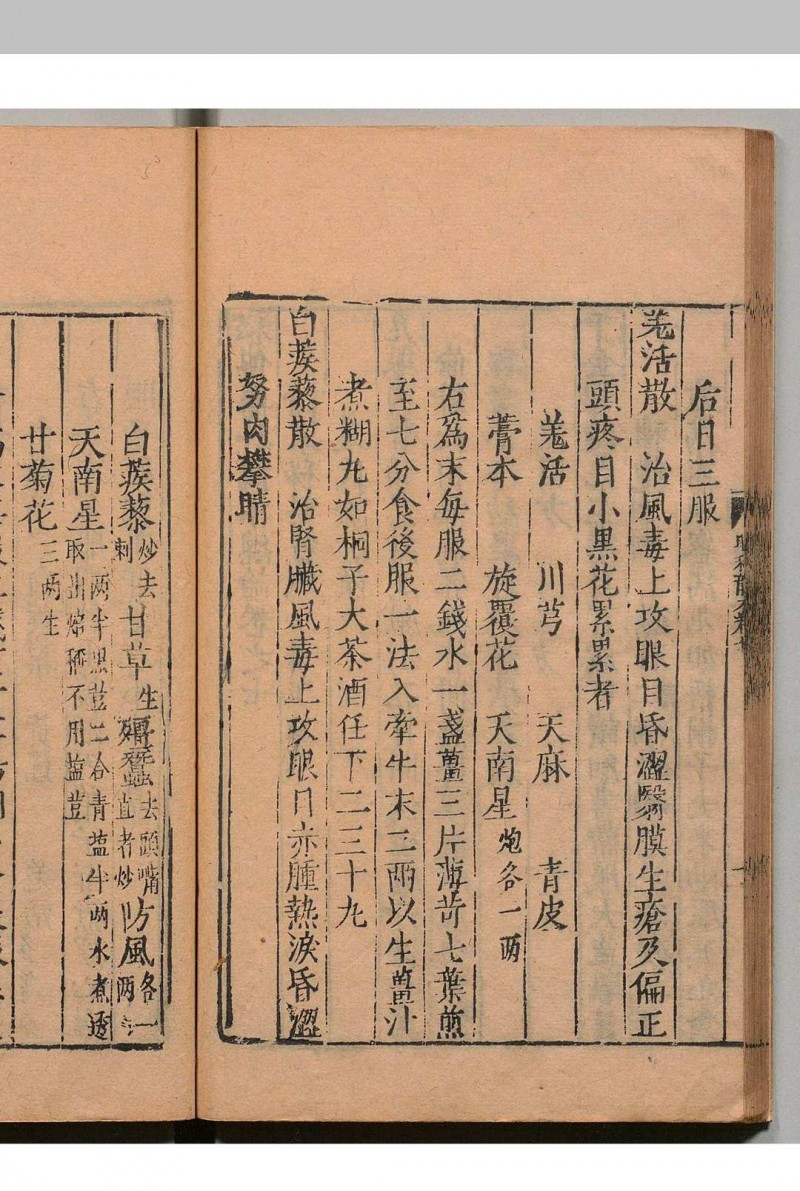 后日三服
羗活散　治風毒上攻眼目昏澀翳膜生瘡及偏正
頭疼目小黑花累累者
羗活　川芎　天麻　青皮
藁本　旋覆花　天南星炮各一两
右爲末每服二錢水一盞薑三片薄苛七葉煎
至七分食後服一法入牽牛末二兩以生薑汁
煮糊九如桐子大茶酒任下二三十九
白蒺藜散　治腎臟風毒上攻眼目赤腫熱淚昏澀
努肉攀睛
白蒺藜炒去刺　甘草生　殭蠶去頭嘴直者炒　防風各一两
天南星一两半黑荳二合青盐半两水煮透取出焙稱不用盐荳
甘菊花三两生